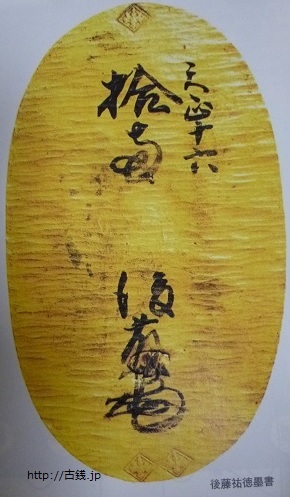 天正十六
拾両
後藤
http://古銭.jp
後藤祐徳墨書